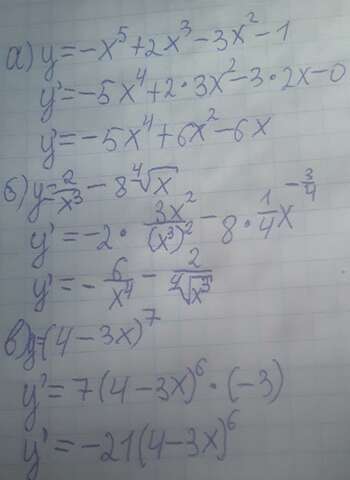 а) y=-x⁵+2x³-3x²-1
y'=-5x⁴+2·3x²-3·2x-0
y'=-5x⁴+6x²-6x
б) y=2/x³-8⁴√x
y'=-2·3x²/(x³)²-8·1/4x^(-3/4)
y'=-6/x⁴-2/⁴√x³
в) y=(4-3x)⁷
y'=7(4-3x)⁶·(-3)
y'=-21(4-3x)⁶